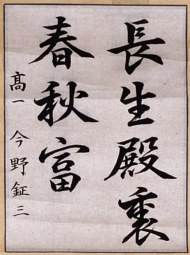 長生殿裏
春秋富
高一 今野鉦三